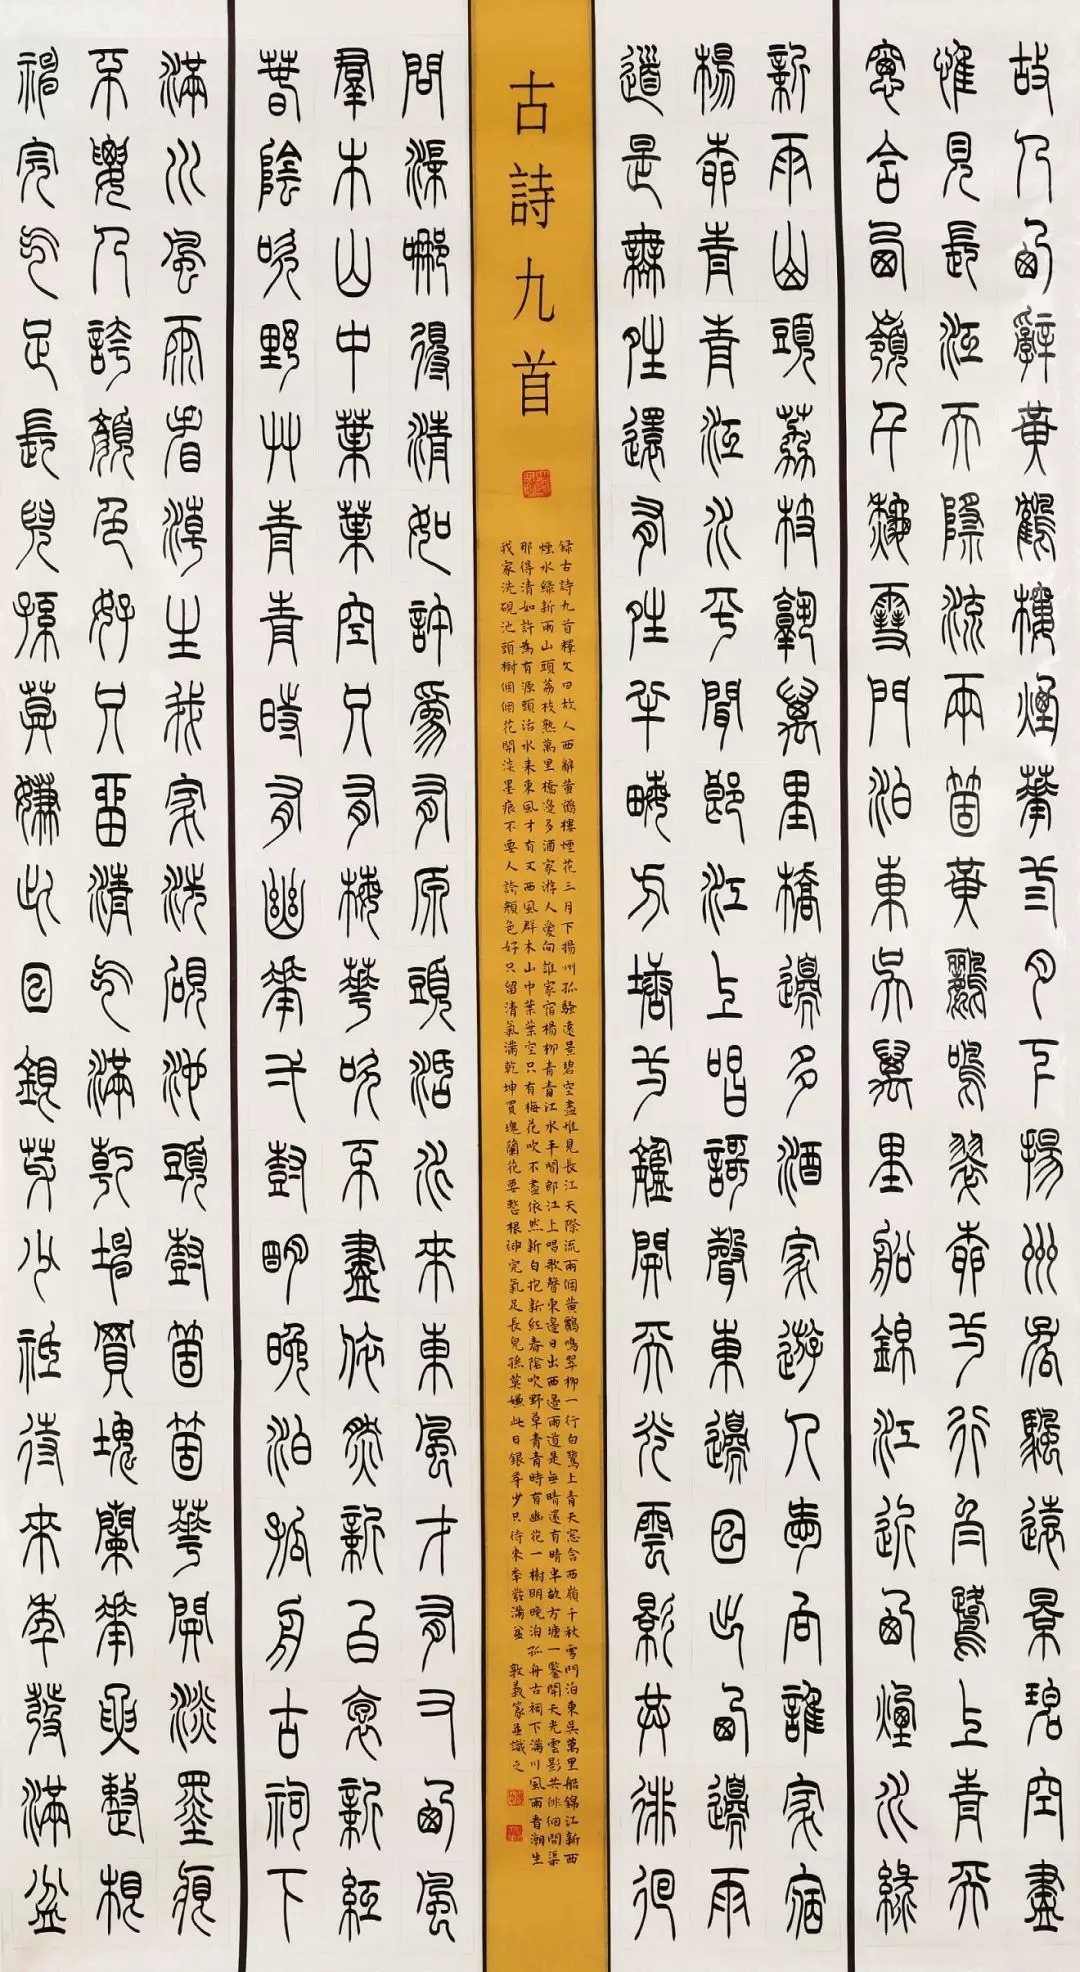 故人西辭黃鶴樓煙華三月下揚州孤騷遠景碧空盡
惟見長江天際流兩箇黃鸝鳴翠柳一行白鷺上青天
窗含西嶺千秋雪門泊東吳萬里船錦江近西煙水綠
新雨山頭荔枝孰萬里橋邊多酒家遊人愛向誰家宿
楊柳青青江水平聞郎江上唱歌聲東邊日出西邊雨
道是無晴還有晴半畝方塘一鑑開天光雲影共徘徊
古詩九首
錄古詩九首釋文曰故人西辭黃鶴樓煙花三月下揚州孤騷遠景碧空盡惟見長江天際流兩個黃鸝鳴翠柳一行白鷺上青天窓含西嶺千秋雪門泊東吳萬里船錦江新西
煙水綠新雨山頭荔枝熟萬里橋邊多酒家游人愛向誰家宿楊柳青青江水平聞郎江上唱歌聲東邊日出西邊雨道是無晴還有晴半畝方塘一鑒開天光雲影共徘徊問渠
那得清如許為有源頭活水來東風才有又西風群木山中葉葉空只有梅花吹不盡依然新白抱新紅春陰吹野草青青時有幽花一樹明晚泊孤舟古祠下滿川風雨看潮生
我家洗硯池頭樹個個花開淡墨痕不要人誇顏色好只留清氣滿乾坤買塊蘭花要整根神完氣足長兒孫莫嫌此日銀芽少只待來年發滿盆 敦義篆並識之
問渠哪得清如許為有原頭活水來東風才有又西風
羣木山中葉葉空只有梅華吹不盡依然新白裒新紅
春陰吹野艸青青時有幽華一樹明晚泊孤舟古祠下
滿川風雨看潮生我家洗硯池頭樹箇箇華開淡墨痕
不要人誇顏色好只留清气滿乾坤買塊蘭華要整根
神完气足長兒孫莫嫌此日銀芽少祗待來年發滿盆